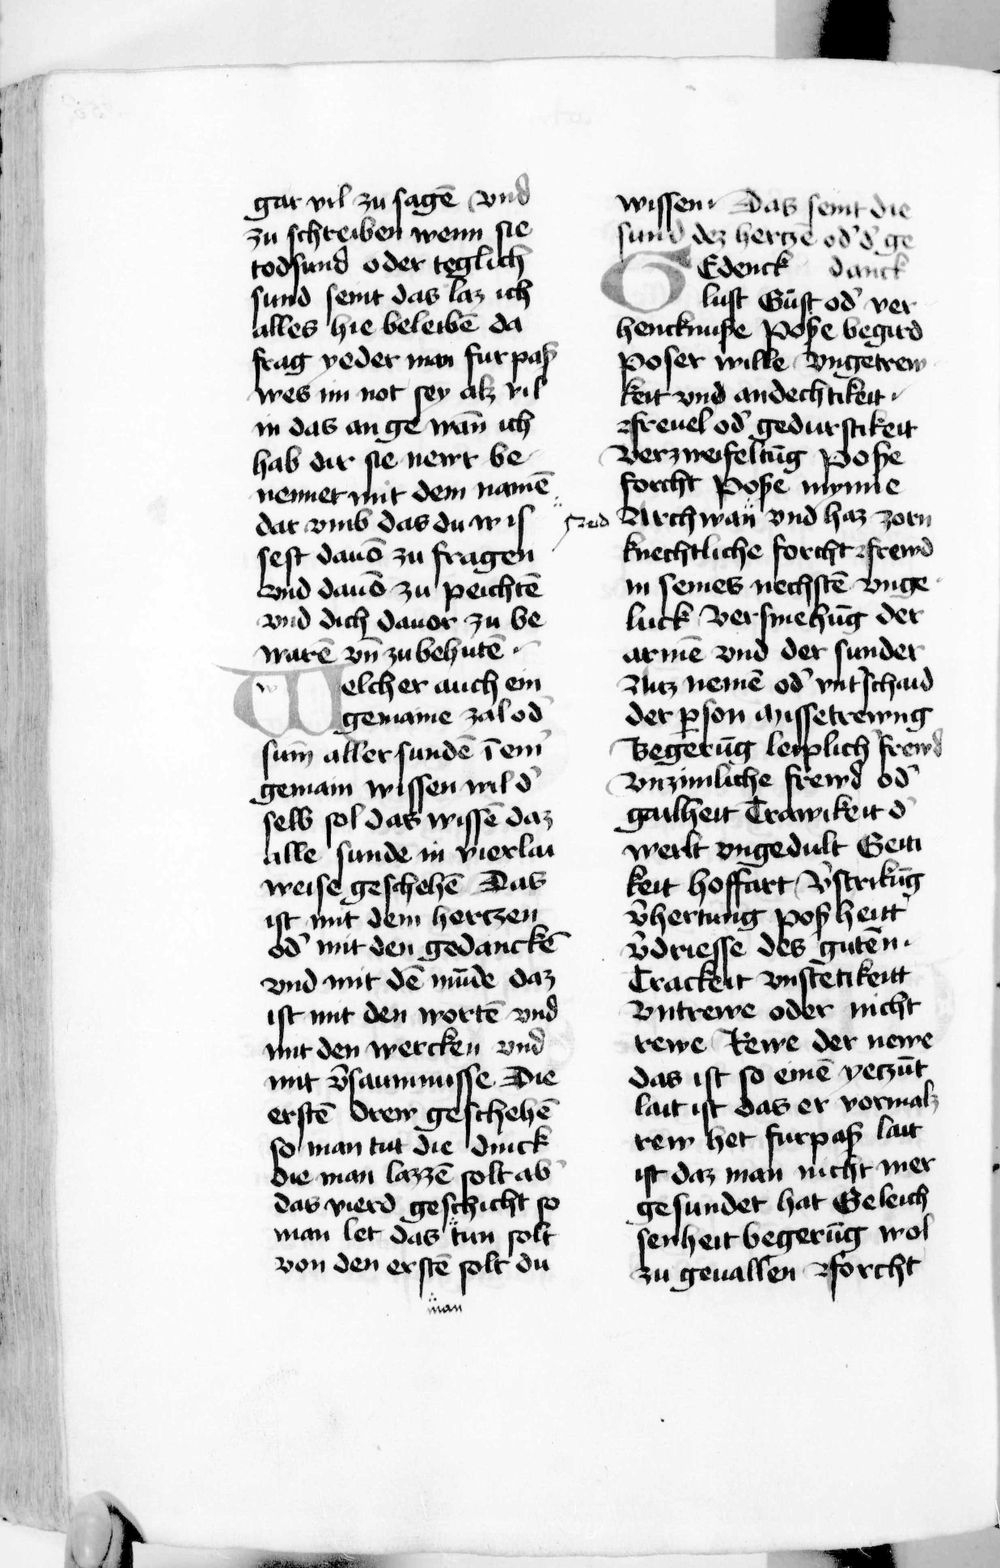 gar vil zu sagē vnd
zu schreiben wenn sie
todsund oder teglich
sund seint das laz ich
alles hie beleibē da
frag yeder man furpaß
wes im not sey alz vil
in das an ge wān ich
hab dir sie newr be
nennet mit dem namē
dar vmb das du wis
sest dauō zu fragen
vnd dauō zu peichtē
vnd dich dauor zu be
warē vn̄ zu behutē
Welcher auch ein
gemaine zal od̾
sum̄ aller sundē ī em̾
gemain wissen wil d̾
selb sol das wissē daz
alle sunde in vierlai
weise geschehē Das
ist mit dem hertzen
od̾ mit den gedanckē
vnd mit dē mūde daz
ist mit den wortē vnd
mit den wercken vnd
mit v̾saumnusse Die
erstē drew geschehē
so man tut die dinck
die man lazzē solt ab̾
das vierd geschicht so
man let das tun solt
von den erstē solt du
man
wissen Das seint die
sund dez hertzē od̾ d̾ ge
GEdenck danck
lust Gūst od̾ ver
hencknuße Poße begird
Poser wille vngetrew
keit vnd andechtikeit
frevel od̾ gedurstikeit
Verzweifelūg Poße
forcht Poße mynne
Archwan vnd haz zorn
knechtliche forcht frewd
in seines nechstē vnge
luck versmehūg der
armē vnd der sunder
Auz nemē od̾ vntschaid
der pson aussetrewng
Begerūg leiplich frewd
vnzimliche frewd od̾
gailheit Trawikeit d̾
werlt vngedult Geiti
keit hoffart v̾strikūg
v̾hertung poßheitt
v̾driesse des gutēn
Trackeit vnstētikeitt
vntrewe oder nicht
rewe Rewe der newe
das ist so einē yeczūt
lait ist das er vormalz
rew het furpaß lait
ist daz man nicht mer
gesundet hat Geleich
senheit begerūg wol
zu geuallen forcht